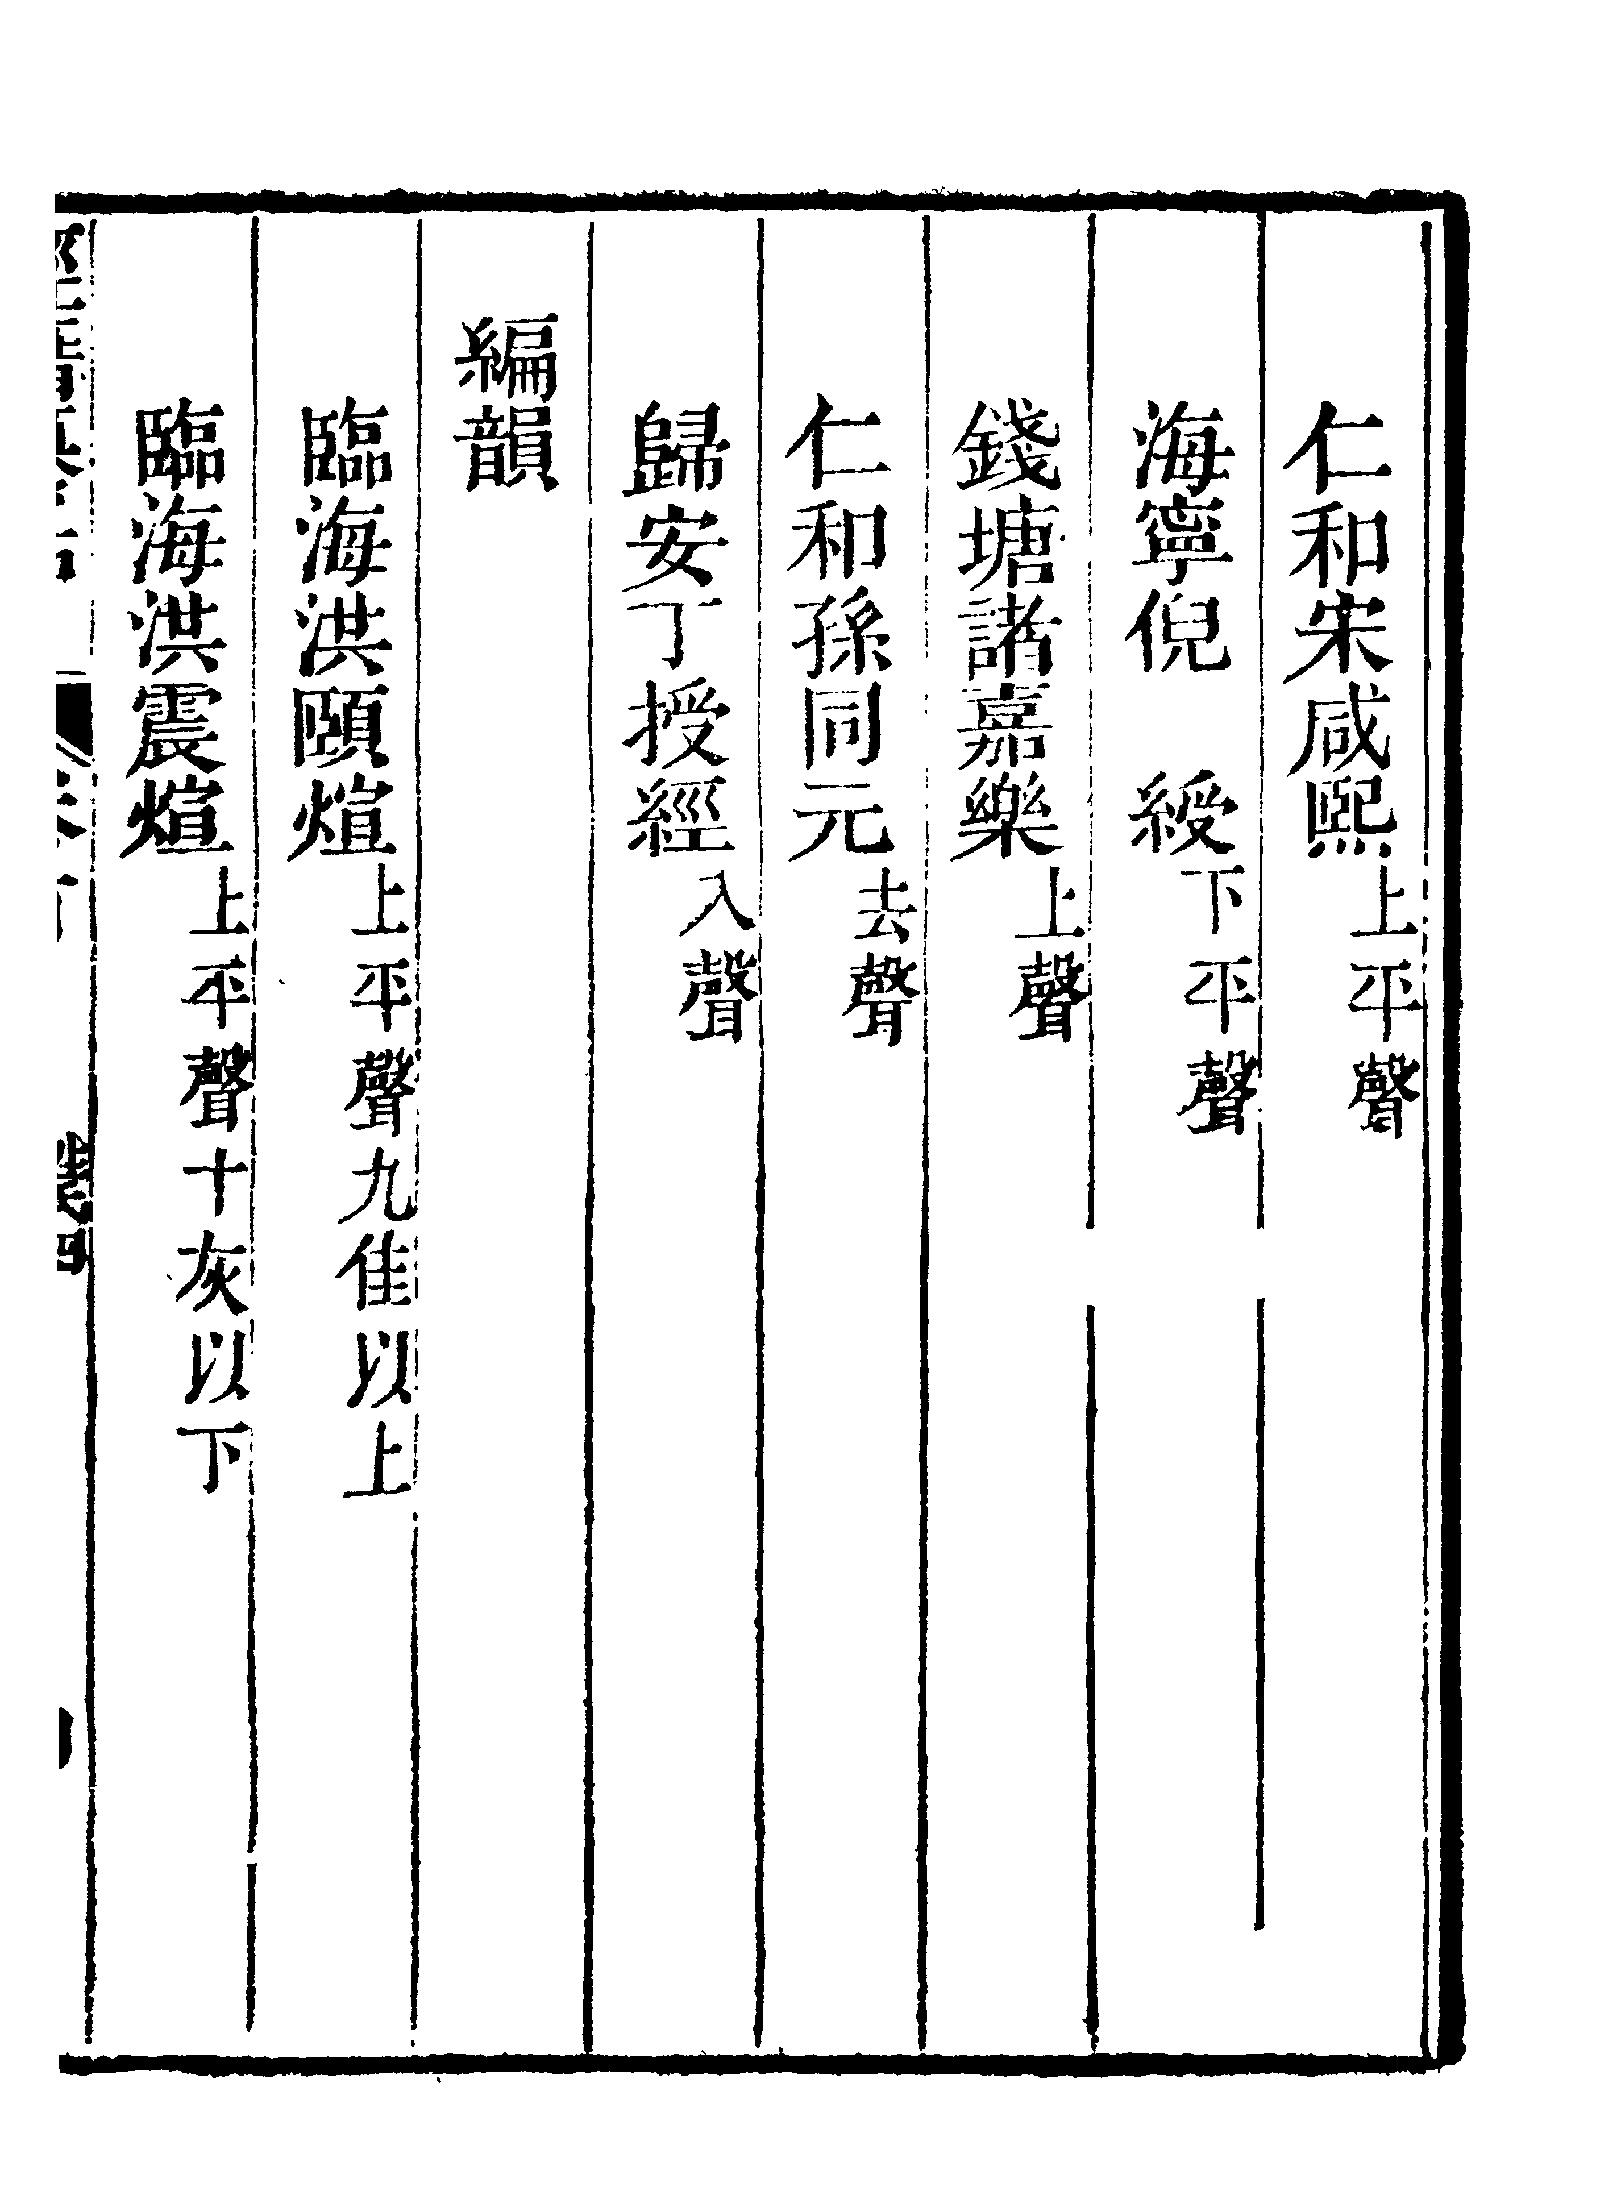 仁和宋咸熙上平聲
海寧倪　綬下平聲
錢塘諸嘉樂上聲
仁和孫同元去聲
歸安丁授經入聲
編韻
臨海洪頤煊上平聲九佳以上
臨海洪震煊上平聲十灰以下